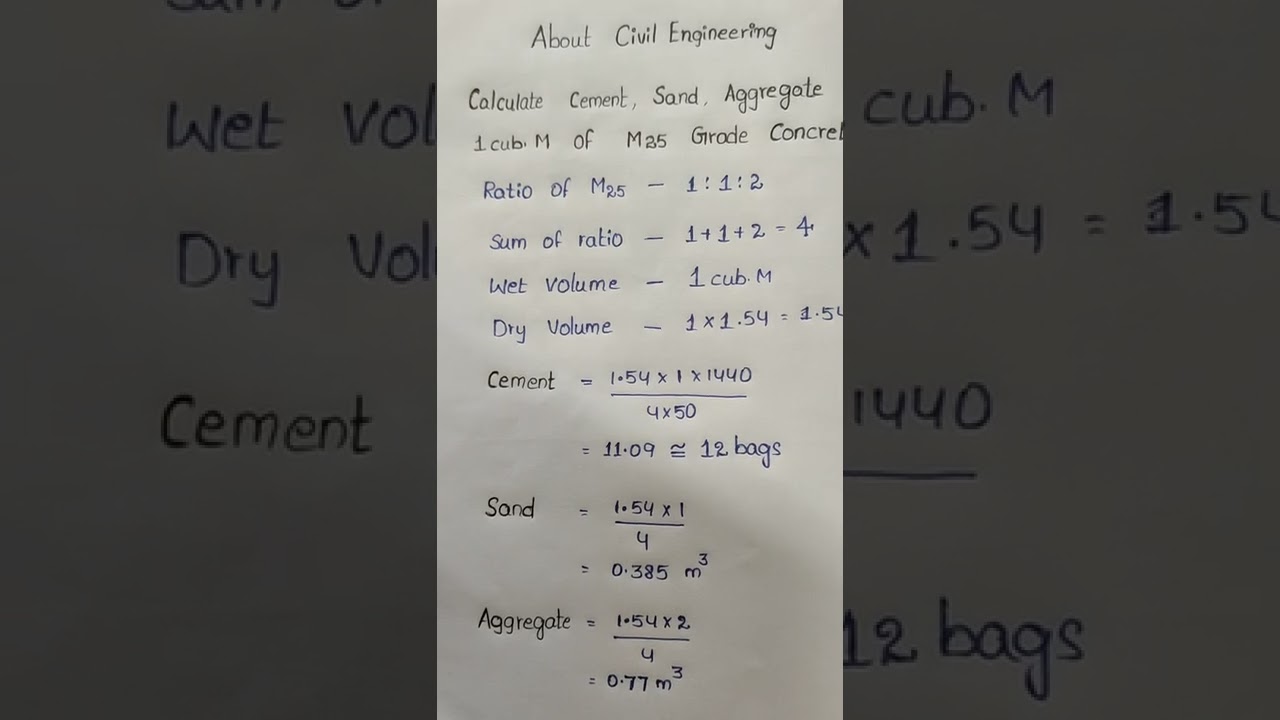 About Civil Engineering
Calculate Cement, Sand, Aggregate
1 cub. M of M25 Grade Concret
Ratio of M25 — 1:1:2
Sum of ratio — 1+1+2 = 4
Wet volume — 1 cub. M
Dry Volume — 1 x 1.54 = 1.54
Cement = 1.54 x 1 x 1440
4x50
= 11.09 ≅ 12 bags
Sand = 1.54 x 1
4
= 0.385 m³
Aggregate = 1.54 x 2
4
= 0.77 m³